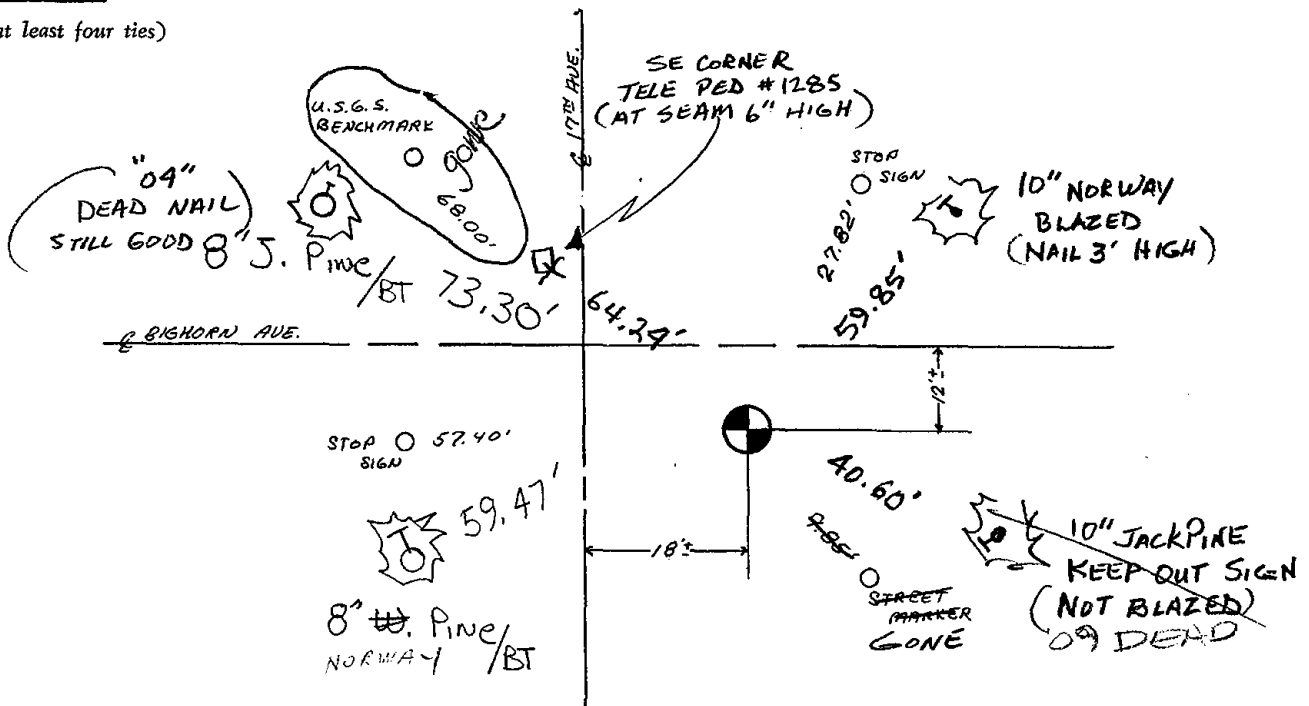 at least four ties)
℄ 17TH AVE.
SE CORNER
TELE PED #1285
(AT SEAM 6" HIGH)
U.S.G.S.
BENCHMARK
gone
68.00'
"04"
DEAD NAIL
STILL GOOD
8" J. Pine
/BT
73.30'
64.24'
STOP
SIGN
27.82'
10" NORWAY
BLAZED
(NAIL 3' HIGH)
59.85'
℄ BIGHORN AVE.
12'±
STOP
SIGN
57.40'
59.47'
8" W. Pine
NORWAY /BT
18'±
40.60'
9.85'
STREET
MARKER
GONE
10" JACKPINE
KEEP OUT SIGN
(NOT BLAZED)
'09 DEAD